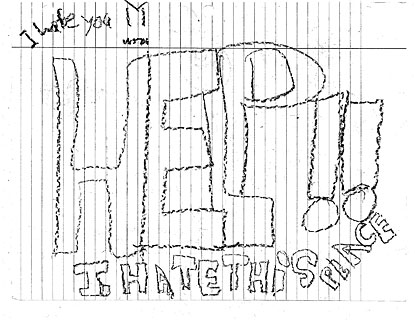 I hate you
HELP!!
I HATE THiS PLACE